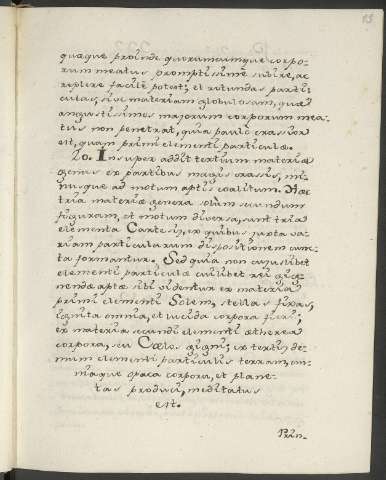 83
quæque proinde quorumcumque corpo-
rum meatus promptissimè subire, ac
replere facilè potest; et rotundas parti-
culas, sive materiam globulosam, quæ
angustissimos majorum corporum mea-
tus non penetrat, quia paulò crassior
est, quam primi elementi particulæ.
20. Insuper addit tertium materiæ
genus ex partibus magis crassis, mi-
nusque ad motum aptis coalitum. Hæc
tria materiæ genera solam secundum
figuram, et motum diversa, sunt tria
elementa Cartesii, ex quibus juxta va-
riam particularum dispositionem cunc-
ta formantur. Sed quia non cujuslibet
elementi particulæ cuilibet rei gig-
nendæ aptæ sibi videntur ex materia
primi elementi Solem, stellas fixas,
ignita omnia, et lucida corpora fieri;
ex materia secundi elementi ætherea
corpora, seu Cælos gigni; ex tertii de-
mum elementi particulis terram, om-
niaque opaca corpora, et plane-
tas produci, meditatus
est.
Prin-